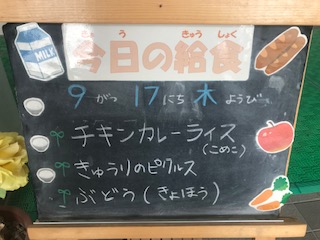 MILK
きょう きゅうしょく
今日の給食
9がつ17にち木ようび
チキンカレーライス
(こめこ)
きゅうりのピクルス
ぶどう(きょほう)